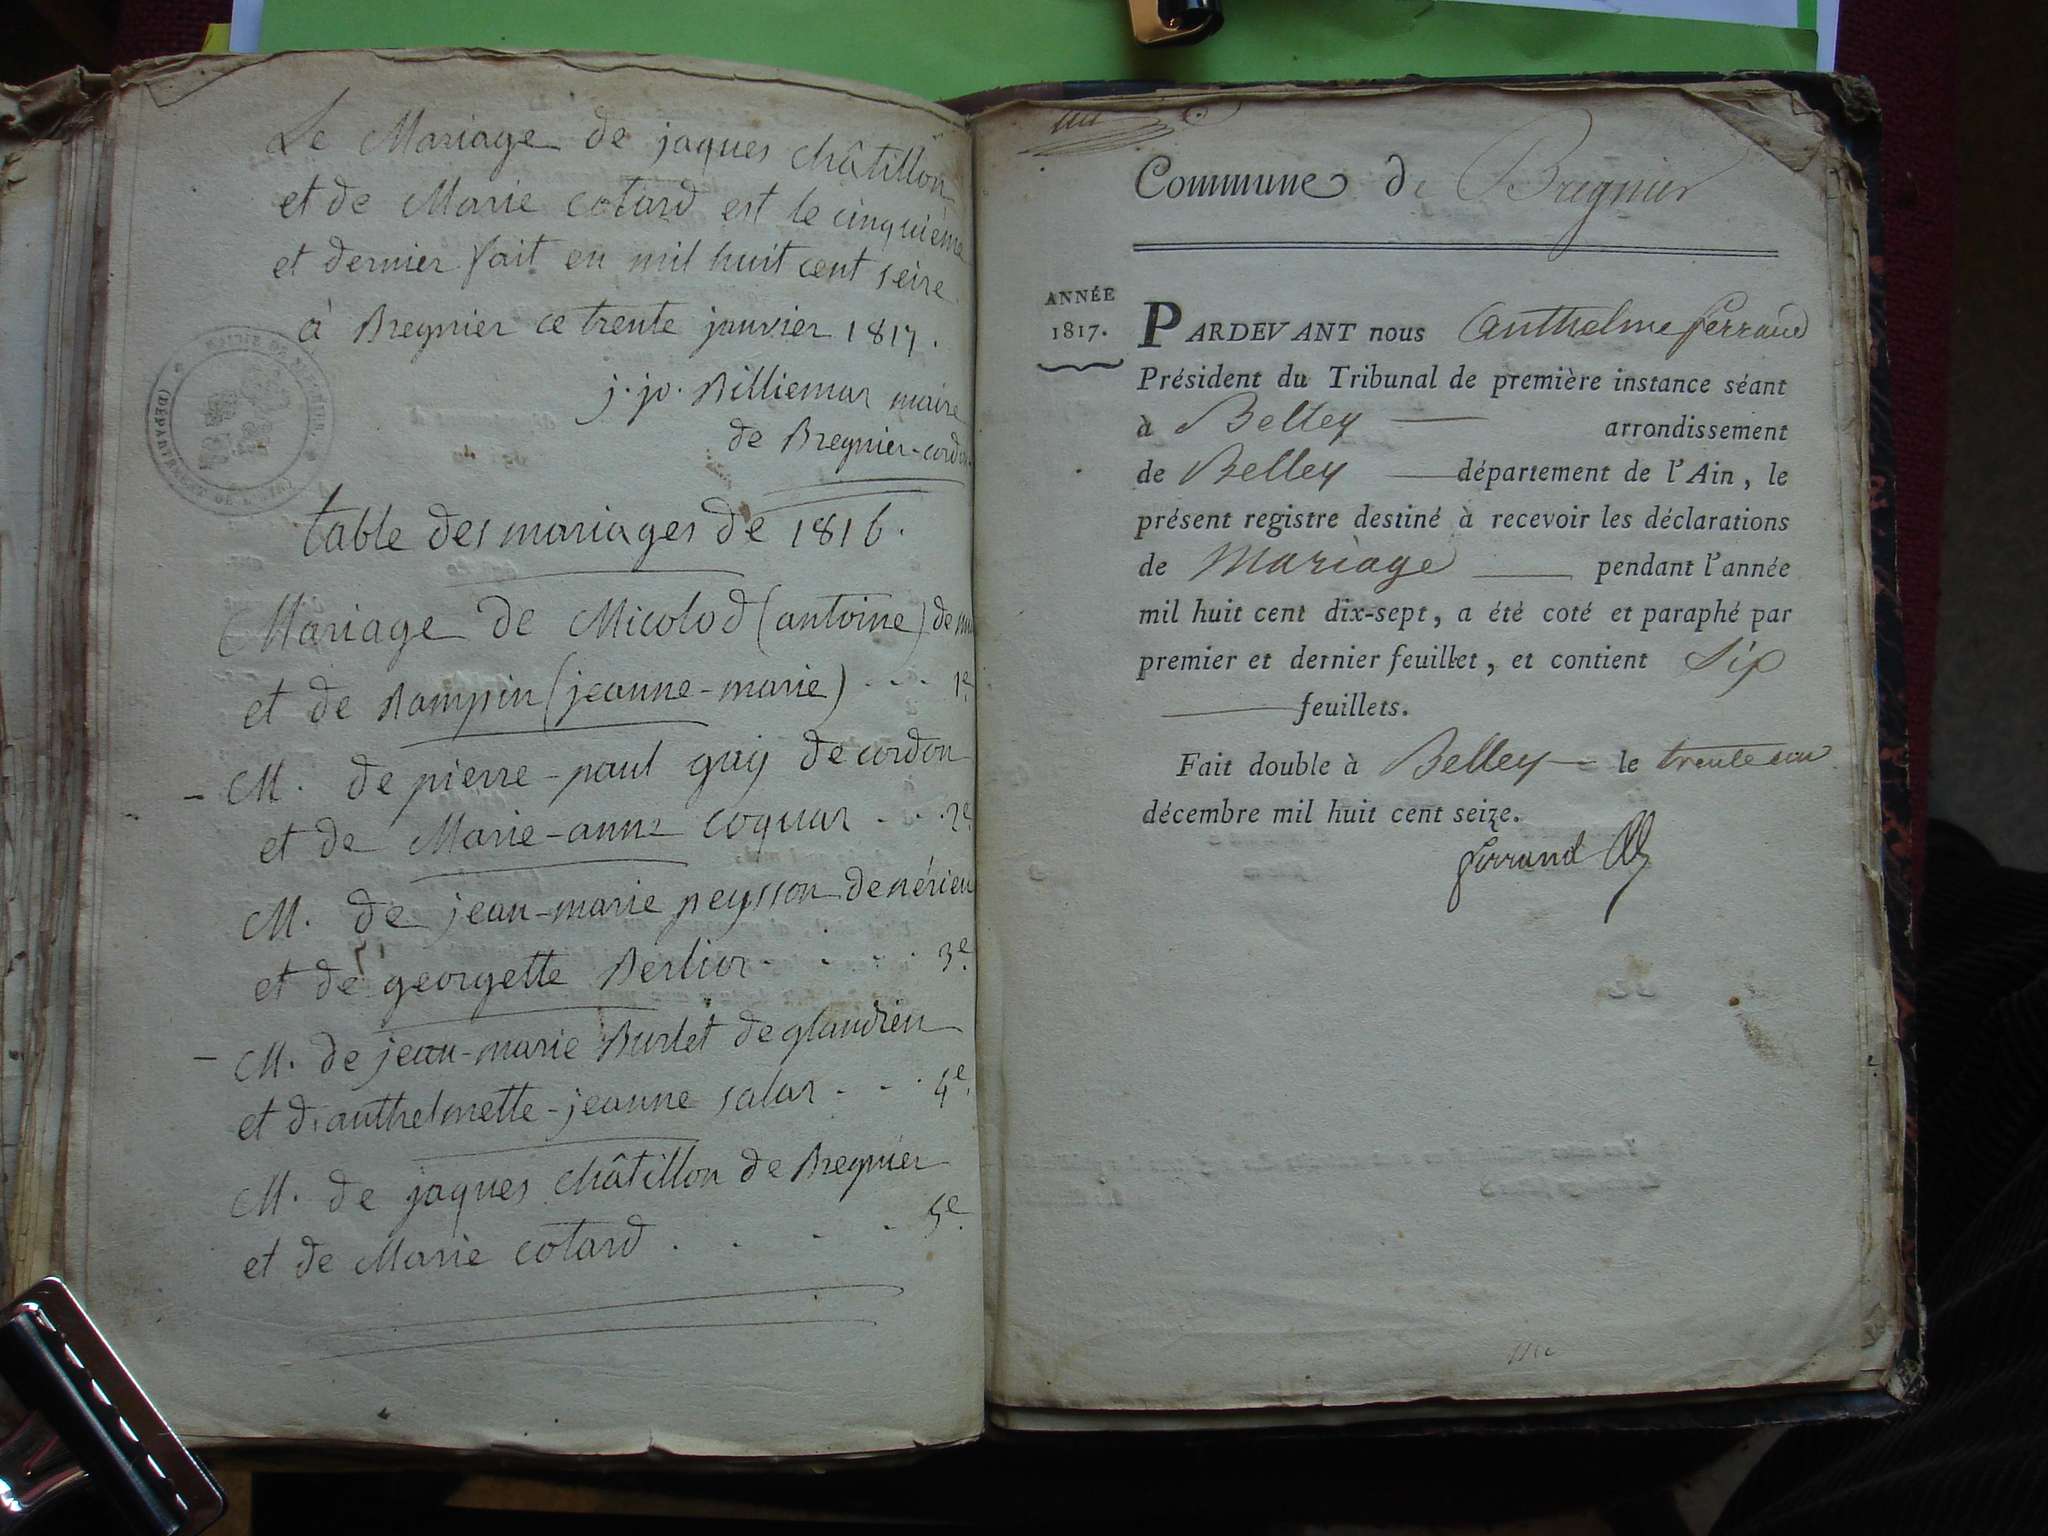 Le Mariage de jaques châtillon
et de Marie cotard est le cinquième
et dernier fait en mil huit cent seire
à Bregnier ce trente janvier 1817.
j. jo. Billiemar maire
de Bregnier-cordon
table des mariages de 1816.
Mariage de Micolod (antoine) de
et de Rampin (jeanne-marie) . . . 1e.
M. de pierre-paul guy de cordon
et de Marie-anne coquar . . . 2e.
M. de jean-marie peysson de nérieu
et de georgette Berlior . . . . 3e.
M. de jean-marie Burlet de glandieu
et d'anthelmette-jeanne salar . . . 4e.
M. de jaques châtillon de Bregnier
et de Marie cotard . . . . . 5e.
Commune de Bregnier
ANNÉE
1817.
PARDEVANT nous Anthelme ferrand
Président du Tribunal de première instance séant
à Belley arrondissement
de Belley département de l'Ain, le
présent registre destiné à recevoir les déclarations
de Mariage pendant l'année
mil huit cent dix-sept, a été coté et paraphé par
premier et dernier feuillet, et contient Six
feuillets.
Fait double à Belley le trente un
décembre mil huit cent seize.
ferrand